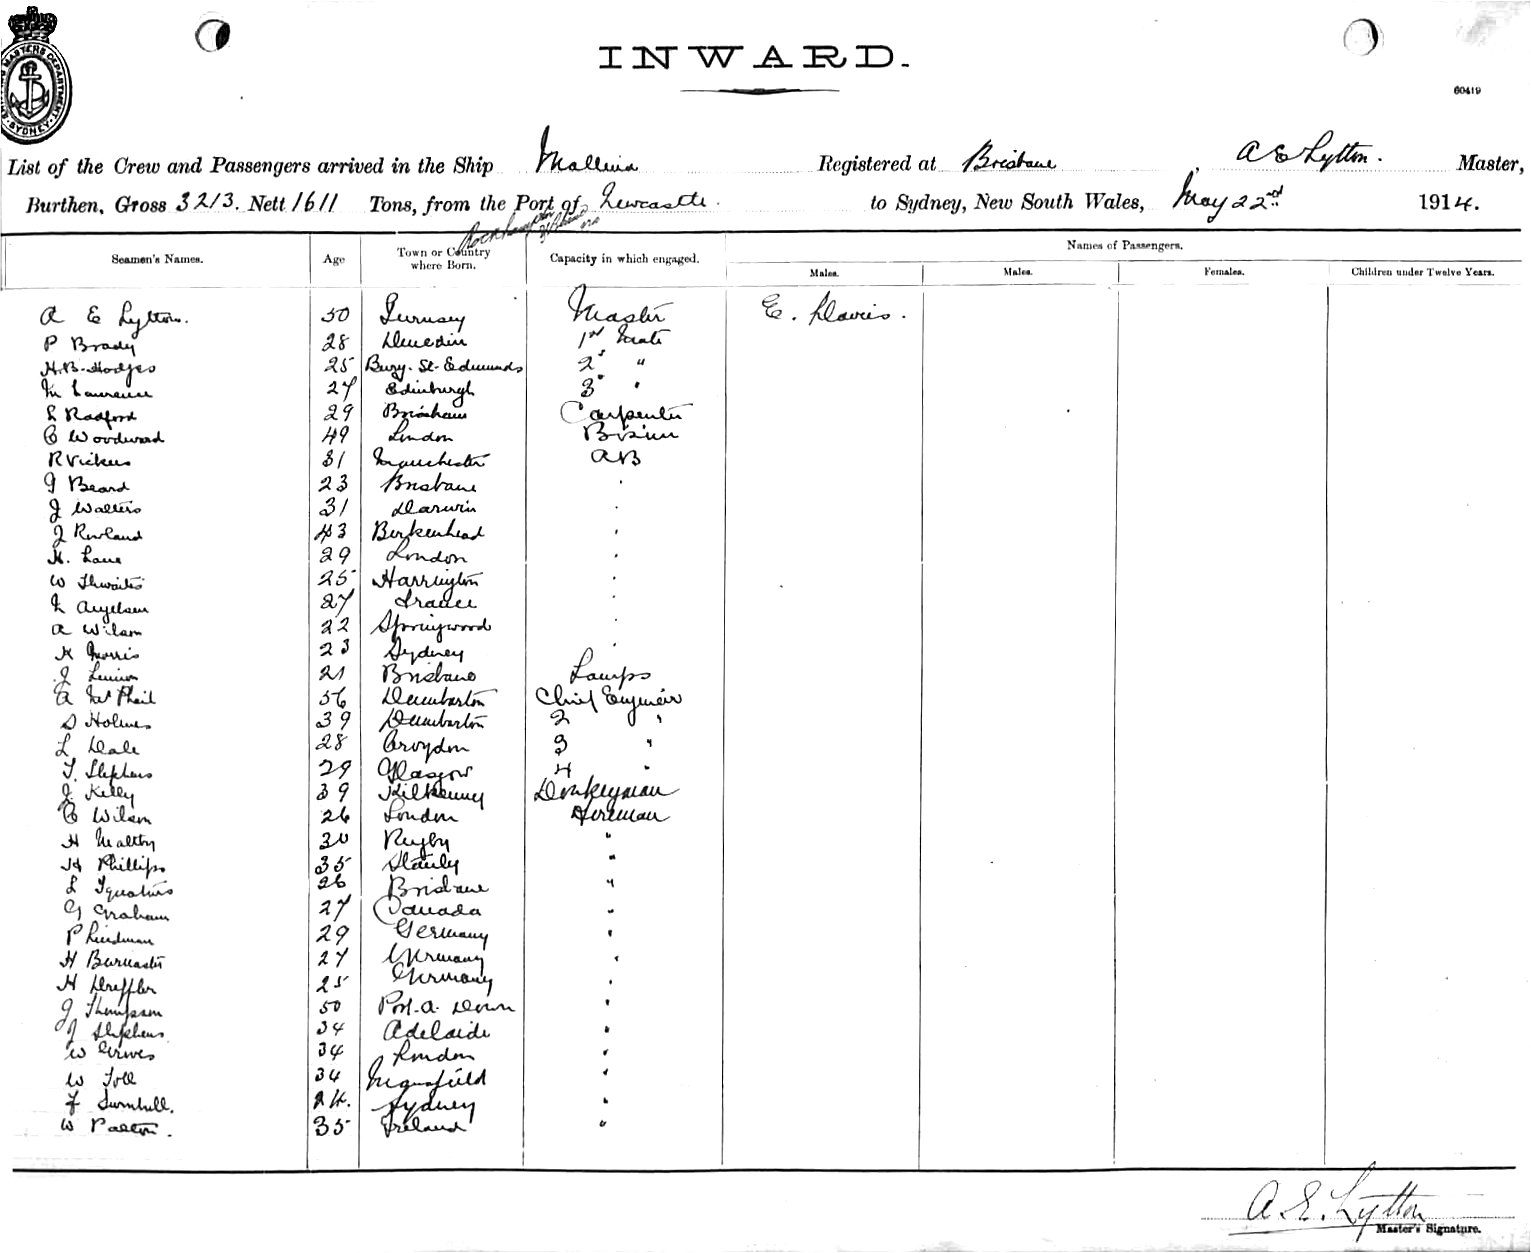 SHIPPING MASTERS DEPARTMENT. SYDNEY
INWARD.
60419
List of the Crew and Passengers arrived in the Ship Mallina Registered at Brisbane, A E Lytton. Master,
Burthen, Gross 3213. Nett 1611 Tons, from the Port of Newcastle. to Sydney, New South Wales, May 22nd 1914.
Rockhampton
Seamen's Names. Age Town or Country where Born. Capacity in which engaged. Names of Passengers.
Males. Males. Females. Children under Twelve Years.
A E Lytton. 50 Gurnsey Master E. Davies.
P Brady 28 Dunedin 1st Mate
H.B. Hodges 25 Bury. St. Edmunds 2" "
M Lawrence 27 Edinburgh 3" "
L Radford 29 Brixham Carpenter
C Woodward 49 London Bosun
R Vickers 31 Manchester AB
G Beard 23 Brisbane "
J Walters 31 Darwin "
J Rowland 43 Birkenhead "
H. Lane 29 London "
W Thwaites 25 Harrington "
27 France "
A Wilson 22 Springwood "
K Morris 23 Sydney "
J 21 Brisbane Lamps
A McPhail 56 Dumbarton Chief Engineer
D Holmes 39 Dumbarton 2 "
L Dale 28 Croydon 3 "
T. Stephens 29 Glasgow 4 "
J Kelly 39 Kilkenny Donkeyman
C Wilson 26 London Fireman
H Maltby 30 Rugby "
H Phillips 35 Stanly "
L Ignatius 26 Brisbane "
G Graham 27 Canada "
P Lindman 29 Germany "
H Burmaster 27 Germany "
H Dreffler 25 Germany "
J Thompson 50 Port. a. Down "
J Stephens 34 Adelaide "
W 34 London "
W Toll 34 "
F Turnbull. 24. Sydney "
W Patton. 35 Ireland "
A. E. Lytton
Master's Signature.